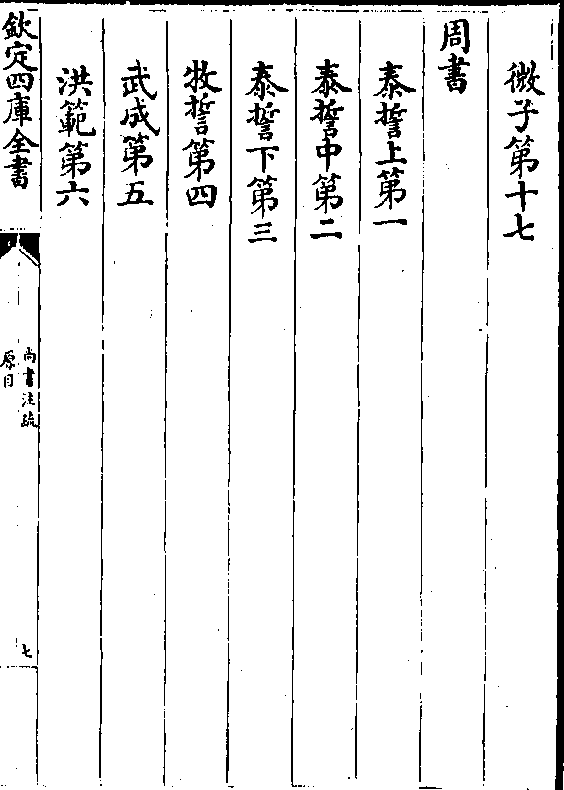 微子第十七
周書
泰誓上第一
泰誓中第二
泰誓下第三
牧誓第四
武成第五
洪範第六
欽定四庫全書
尚書注疏
原目
七